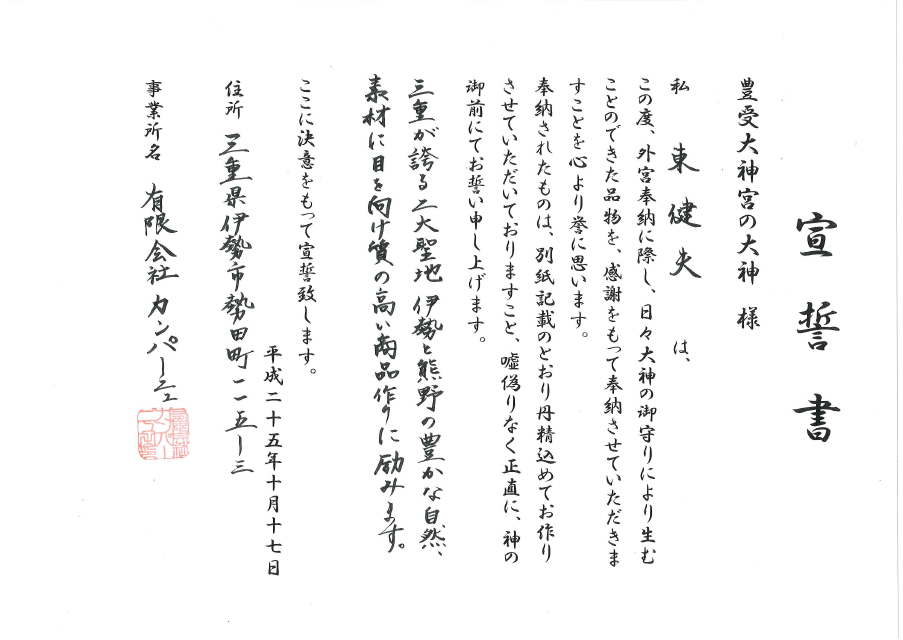 宣誓書
豊受大神宮の大神 様
私 東健夫 は、
この度、外宮奉納に際し、日々大神の御守りにより生む
ことのできた品物を、感謝をもって奉納させていただきま
すことを心より誉に思います。
奉納されたものは、別紙記載のとおり丹精込めてお作り
させていただいておりますこと、嘘偽りなく正直に、神の
御前にてお誓い申し上げます。
三重が誇る二大聖地 伊勢と熊野の豊かな自然、
素材に目を向け質の高い商品作りに励みます。
ここに決意をもって宣誓致します。
平成二十五年十月十七日
住所 三重県伊勢市勢田町一一五ー三
事業所名 有限会社カンパーニュ